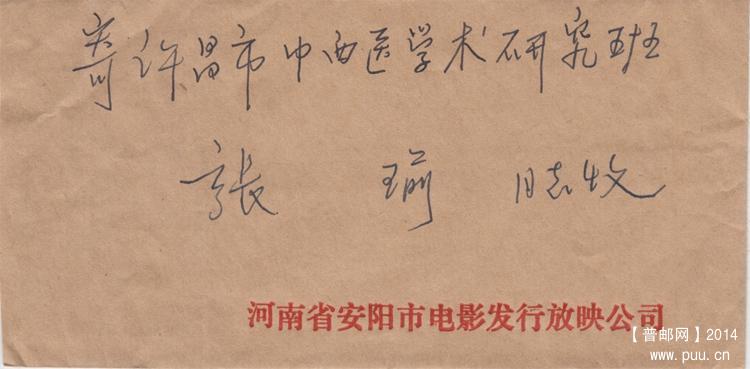 寄许昌市中西医学术研究班
張 瑜 同志收
河南省安阳市电影发行放映公司
【普邮网】2014
www.puu.cn